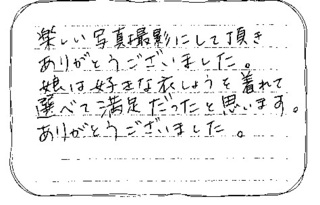 楽しい写真撮影にして頂き
ありがとうございました。
娘は好きな衣しょうを着れて
選べて満足だったと思います。
ありがとうございました。